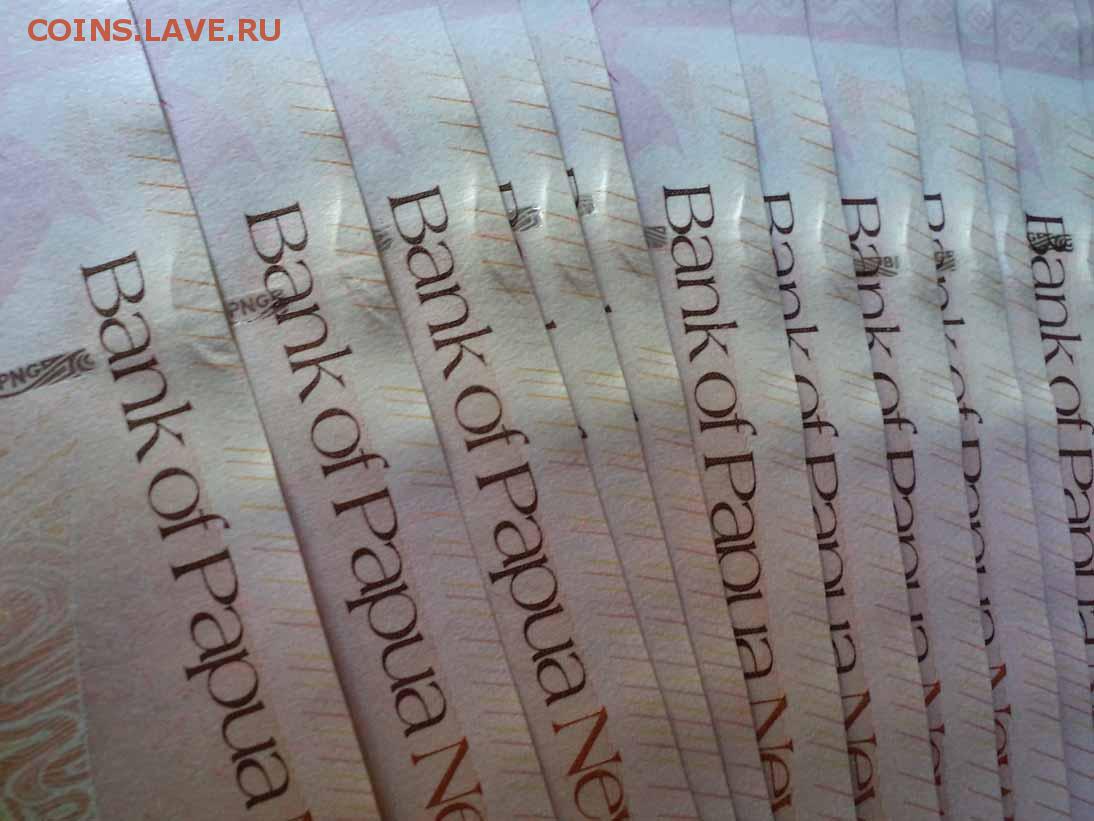 COINS.LAVE.RU
Bank of Papua
PNGB
Bank of Papua Ne
PNGB
Bank of Papua New
Bank of Papua New
Bank of Papua Ne
Bank of Papua Ne
Bank of Papua Ne
Bank of Pap